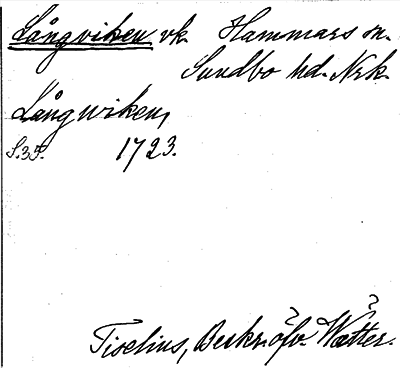 Långviken vk. Hammars sn.
Sundbo hd. Nrk.
Långwiken,
S.35. 1723.
? ?
Tiselius, Beskr. öfv. Wætter.